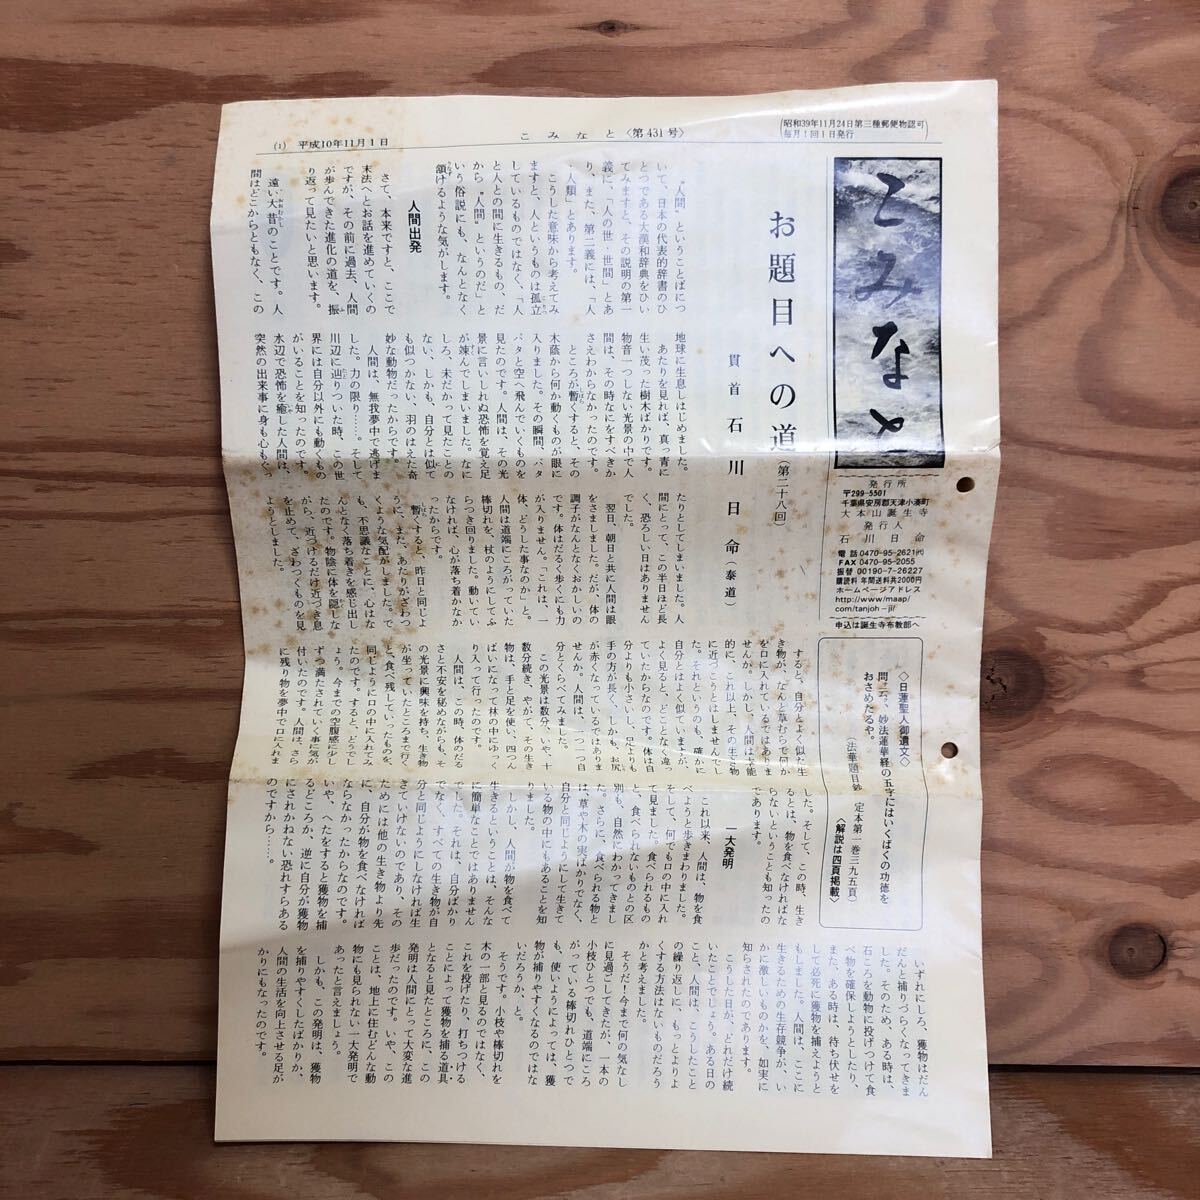 (1) 平成10年11月1日
こみなと〈第431号〉
(昭和39年11月24日第三種郵便物認可)
毎月1回1日発行
こみなと
発行所
〒299-5501
千葉県安房郡天津小湊町
大本山誕生寺
発行人
石川日命
電話 0470-95-2621㈹
FAX 0470-95-2055
振替 00190-7-26227
購読料 年間送料共2000円
ホームページアドレス
http://www/maap/
com/tanjoh-ji/
申込は誕生寺布教部へ
◇日蓮聖人御遺文◇
問ㇾ云ク、妙法蓮華経の五字にはいくばくの功徳を
おさめたるや。
(法華題目鈔 定本第一巻三九五頁)
〈解説は四頁掲載〉
お題目への道(第二十八回)
貫首 石川日命(泰道)
〝人間〟ということばにつ
いて、日本の代表的辞書のひ
とつである大漢和辞典をひい
てみますと、その説明の第一
義に、「人の世・世間」とあ
り、また、第二義には、「人
・人類」とあります。
こうした意味から考えてみ
ますと、人というものは孤立
しているものではなく、「人
と人との間に生きるもの、だ
から〝人間〟というのだ」と
いう俗説にも、なんとなく
頷けるような気がします。
人間出発
さて、本来ですと、ここで
末法へとお話を進めていくの
ですが、その前に過去、人間
が歩んできた進化の道を、振
り返って見たいと思います。
遠い大昔のことです。人
間はどこからともなく、この
地球に生息しはじめました。
あたりを見れば、真っ青に
生い茂った樹木ばかりです。
物音一つしない光景の中で人
間は、その時なにをすべきか
さえわからなかったのです。
ところが暫くすると、その
木蔭から何か動くものが眼に
入りました。その瞬間、バタ
バタと空へ飛んでいくものを
見たのです。人間は、その光
景に言いしれぬ恐怖を覚え足
が竦んでしまいました。なに
しろ、未だかつて見たことの
ない、しかも、自分とは似て
も似つかない、羽のはえた奇
妙な動物だったからです。
人間は、無我夢中で逃げま
した。力の限り……。そして
川辺に辿りついた時、この世
界には自分以外にも動くもの
がいることを知ったのです。
水辺で恐怖を癒した人間は、
突然の出来事に身も心もぐっ
たりとしてしまいました。人
間にとって、この半日ほど長
く、恐ろしい日はありません
翌日、朝日と共に人間は眼
をさましました。だが、体の
調子がなんとなくおかしいの
です。体はだるく歩くにも力
が入りません。「これは、一
体、どうした事なのか」と。
人間は道端にころがっていた
棒切れを、杖のようにしてふ
らつき回りました。動いてい
なければ、心が落ち着かなか
ったからです。
暫くすると、昨日と同じよ
うに、また、あたりがざわつ
くような気配がしました。で
も、不思議なことに、心はな
んとなく落ち着きを感じ出し
たのです。物陰に体を隠しな
がら、近づけるだけ近づき息
を止めて、ざわつくものを見
ようとしました。
すると、自分とよく似た生
き物が、なんと草むらで何か
を口に入れているではありま
せんか。しかし、人間は本能
的に、これ以上、その生き物
に近づこうとはしませんでし
た。それというのも、確かに
自分とはよく似ていますが、
よく見ると、どことなく違っ
ていたからなのです。体は自
分よりも小さいし、足よりも
手の方が長く、しかも、お尻
が赤くなっているではありま
せんか。人間は、一つ一つ自
分とくらべてみました。
この光景は数分、いや、十
数分続き、やがて、その生き
物は、手と足を使い、四つん
ばいになって林の中にゆっく
り入って行ったのです。
人間は、この時、体のだる
さと不安を秘めながらも、そ
の光景に興味を持ち、生き物
が坐っていたところまで行く
と、食べ残していったものを、
同じように口の中に入れてみ
たのです。すると、どうでし
ょう。今までの空腹感に少し
ずつ満たされていく事に気が
付いたのです。人間は、さら
に残り物を夢中で口に入れま
した。そして、この時、生き
るとは、物を食べなければな
らないということも知ったの
であります。
一大発明
これ以来、人間は、物を食
べようと歩きまわりました。
そして、何でも口の中に入れ
て見ました。食べられるもの
と、食べられないものとの区
別も、自然にわかってきまし
た。さらに、食べられる物と
は、草や木の実ばかりでなく、
自分と同じようにして生きて
いる物の中にもあることを知
りました。
しかし、人間が物を食べて
生きるということは、そんな
に簡単なことではありません
でした。それは、自分ばかり
でなく、すべての生き物が自
分と同じようにしなければ生
きていけないのであり、その
ためには他の生き物より先
に、自分が物を食べなければ
ならなかったからなのです。
いや、へたをすると獲物を捕
るどころか、逆に自分が獲物
にされかねない恐れすらある
のですから……。
いずれにしろ、獲物はだん
だんと捕りづらくなってきま
した。そのため、ある時は、
石ころを動物に投げつけて食
べ物を確保しようとしたり、
また、ある時は、待ち伏せを
して必死に獲物を捕えようと
もしました。人間は、ここに
生きるための生存競争が、い
かに激しいものかを、如実に
知らされたのであります。
こうした日が、どれだけ続
いたことでしょう。ある日の
こと、人間は、こうしたこと
の繰り返しに、もっとよりよ
くする方法はないものだろう
かと考えました。
そうだ!今まで何の気なし
に見過ごしてきたが、一本の
小枝ひとつでも、道端にころ
がっている棒切れひとつで
も、使いようによっては、獲
物が捕りやすくなるのではな
いだろうか、と。
そうです。小枝や棒切れを
木の一部と見るのではなく、
これを投げたり、打ちつける
ことによって獲物を捕る道具
となると見たところに、この
発明は人間にとって大変な進
歩だったのです。いや、この
ことは、地上に住むどんな動
物にも見られない一大発明で
あったと言えましょう。
しかも、この発明は、獲物
を捕りやすくしたばかりか、
人間の生活を向上させる足が
かりにもなったのです。